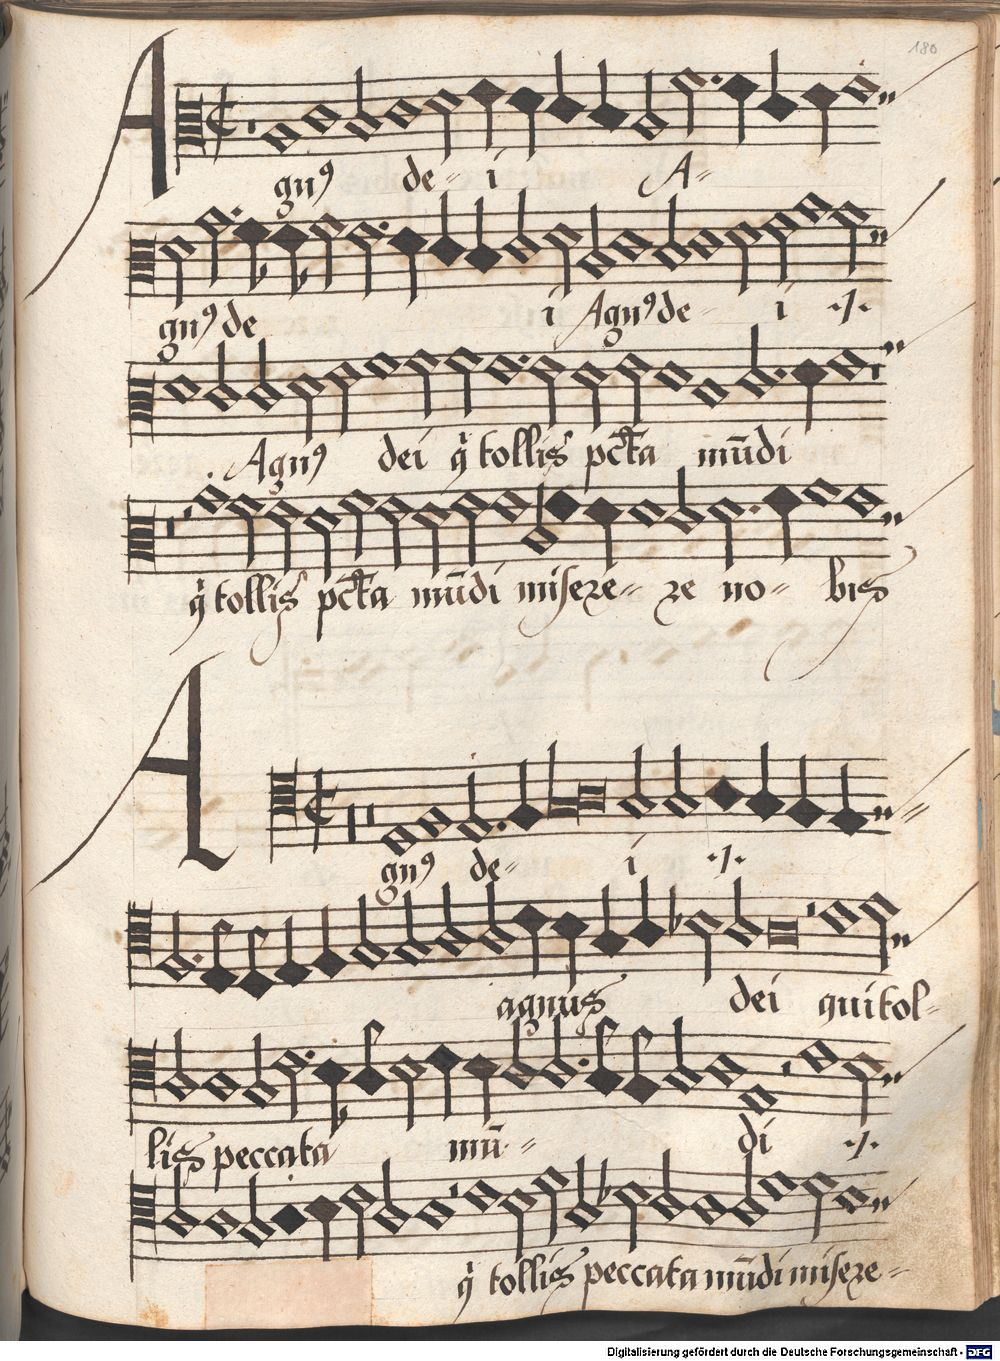 180
Agnꝰ de- i A-
gnꝰ de i Agnꝰ de- i ·/·
Agnꝰ dei q̇ tollis pc̄ta mūdi
q̇ tollis pc̄ta mūdi misere- re no- bis
Agnꝰ de- i ·/·
agnus dei qui tol-
lis peccata mū- di ·/·
q̇ tollis peccata mūdi misere-
Digitalisierung gefördert durch die Deutsche Forschungsgemeinschaft - DFG